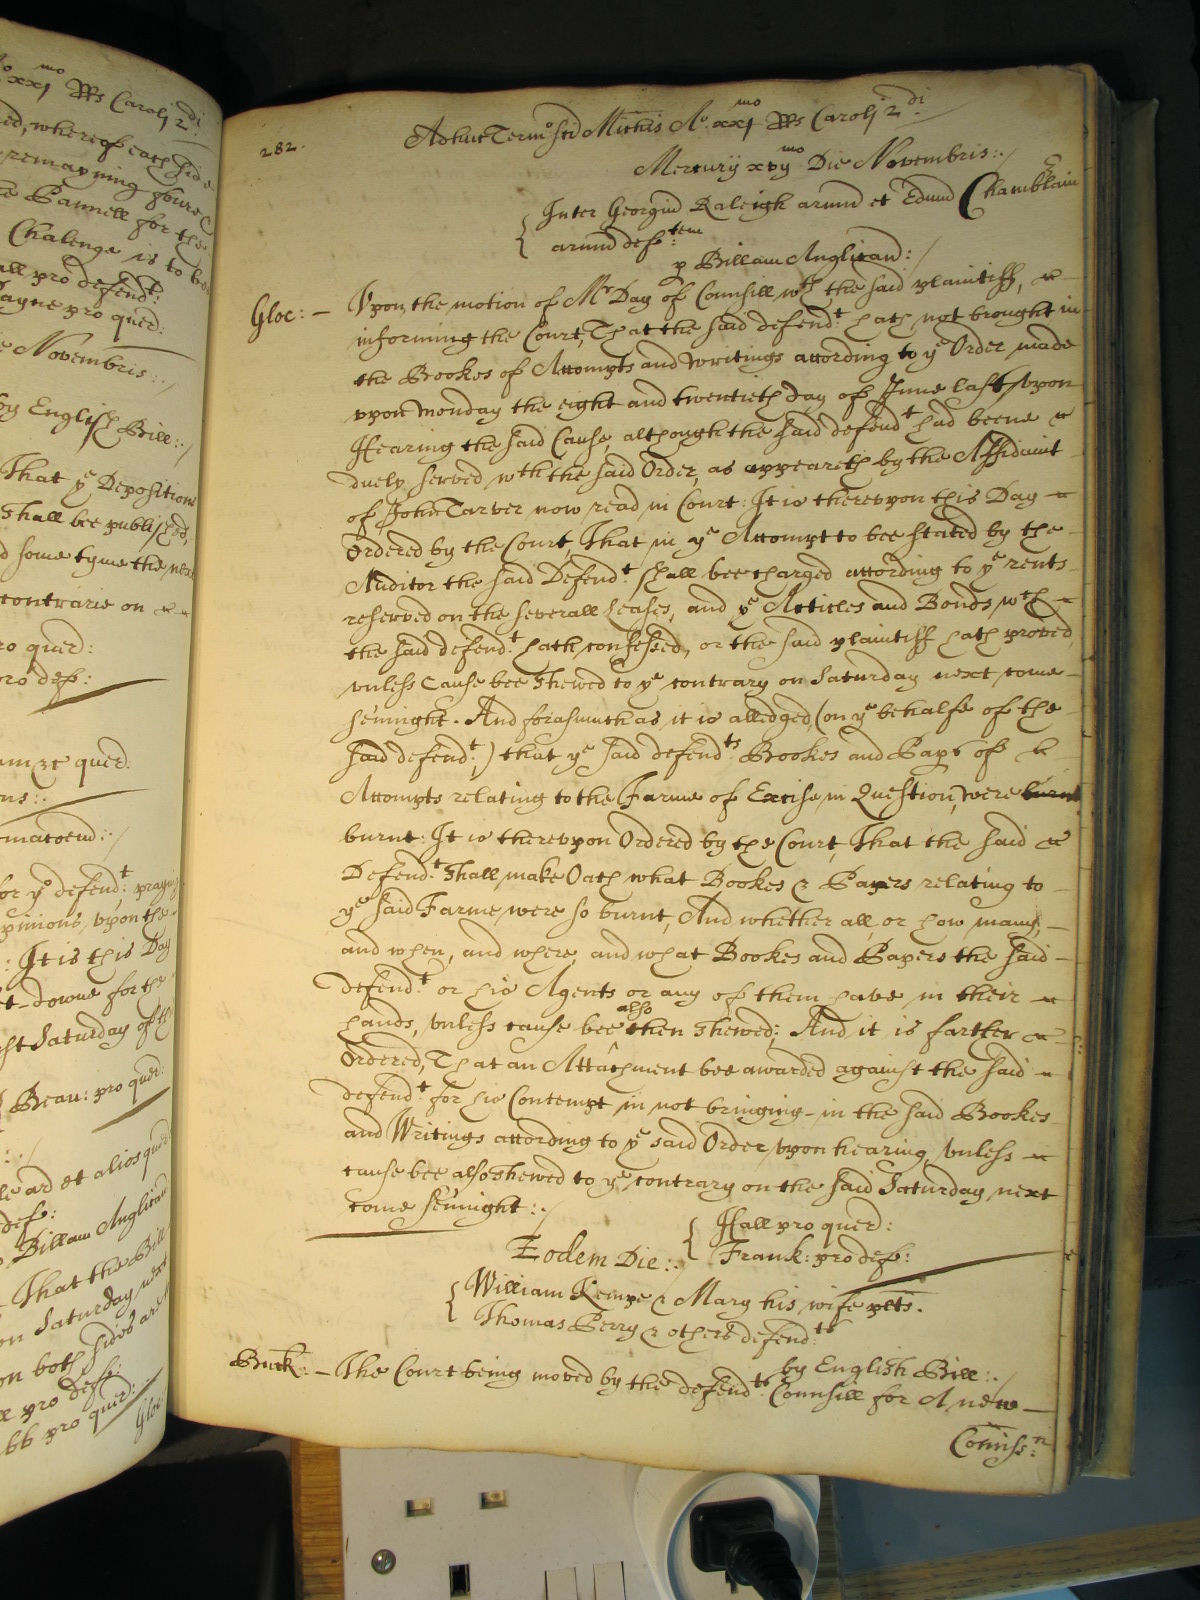 o xxj mo Rs Caroli 2 di
ed, whereof each side
remayning foure
e Pannell for the
Chalenge is to be
all pro defend t:
ayne pro quer:
e Novembris:./
by English Bill:./
That ye Deposition
shall bee published,
d some tyme the next
contrarie on
ro quer:
pro def:
quer:
for ye defend t: praying
pinions, vpon the
: It is this Day
t-downe for the
st Saturday of th
Beau: pro quer:
le ard et alios quer
def:
Billam Anglican
That the Bill
on Saturday next
on both sides are
ll pro def:
bb pro quer:
Gloc:
282.
Adhuc Termo Sci Michis Ao. xxj mo Rs Caroli 2 di./
Mercurij xvij mo Die Novembris:./
Inter Georgiu Raleigh arm et Edmd Chamblain
arm def tem:
p Billam Anglican:/
Gloc: – Vpon the motion of Mr Day of Counsill wth the said plaintiff,
informing the Court, That the said defend t: hath not brought in
the Bookes of Accompts and writings according to ye Order made
vpon Monday the eight and twentieth day of June last vpon
Hearing the said Cause, although the said defend t had beene
duely served wth the said Order, as appeareth by the Affidavit
of John Tarver now read in Court: It is therevpon this Day
Ordered by the Court, That in ye Accompt to bee stated by the
Auditor the said Defend t: shall bee charged according to ye rents
reserved on the severall Leases, and ye Articles and Bonds, wch
the said defend t: hath confessed, or the said plaintiff hath proved,
vnless Cause bee shewed to ye contrary on Saturday next come
sennight. And forasmuch as it is alledged (on ye behalfe of the
said defend t:,) that ye said defend ts Bookes and Paprs of
Accompts relating to the Farme of Excise in Question, were burnt
burnt: It is therevpon Ordered by the Court, That the said
Defend t: shall make Oath what Bookes & Papers relating to
ye said Farme, were so burnt, And whether all, or how many,
and when, and where, and what Bookes and Papers the said
defend t: or his Agents or any of them have in their
hands, vnless cause bee also then shewed; And it is farther
Ordered, That an Attachment bee awarded against the said
defend t: for his Contempt in not bringing-in the said Bookes
and Writings according to ye said Order vpon hearing, vnless
cause bee also shewed to ye contrary on the said Saturday next
come sennight:./
Hall pro quer:
Frank: pro def:
Eodem Die:.
William Kempe & Mary his wife plts.
Thomas Perry & others defend ts
by English Bill:./
Buck: – The Court being moved by the defend ts Counsill for A new
Comiss n: